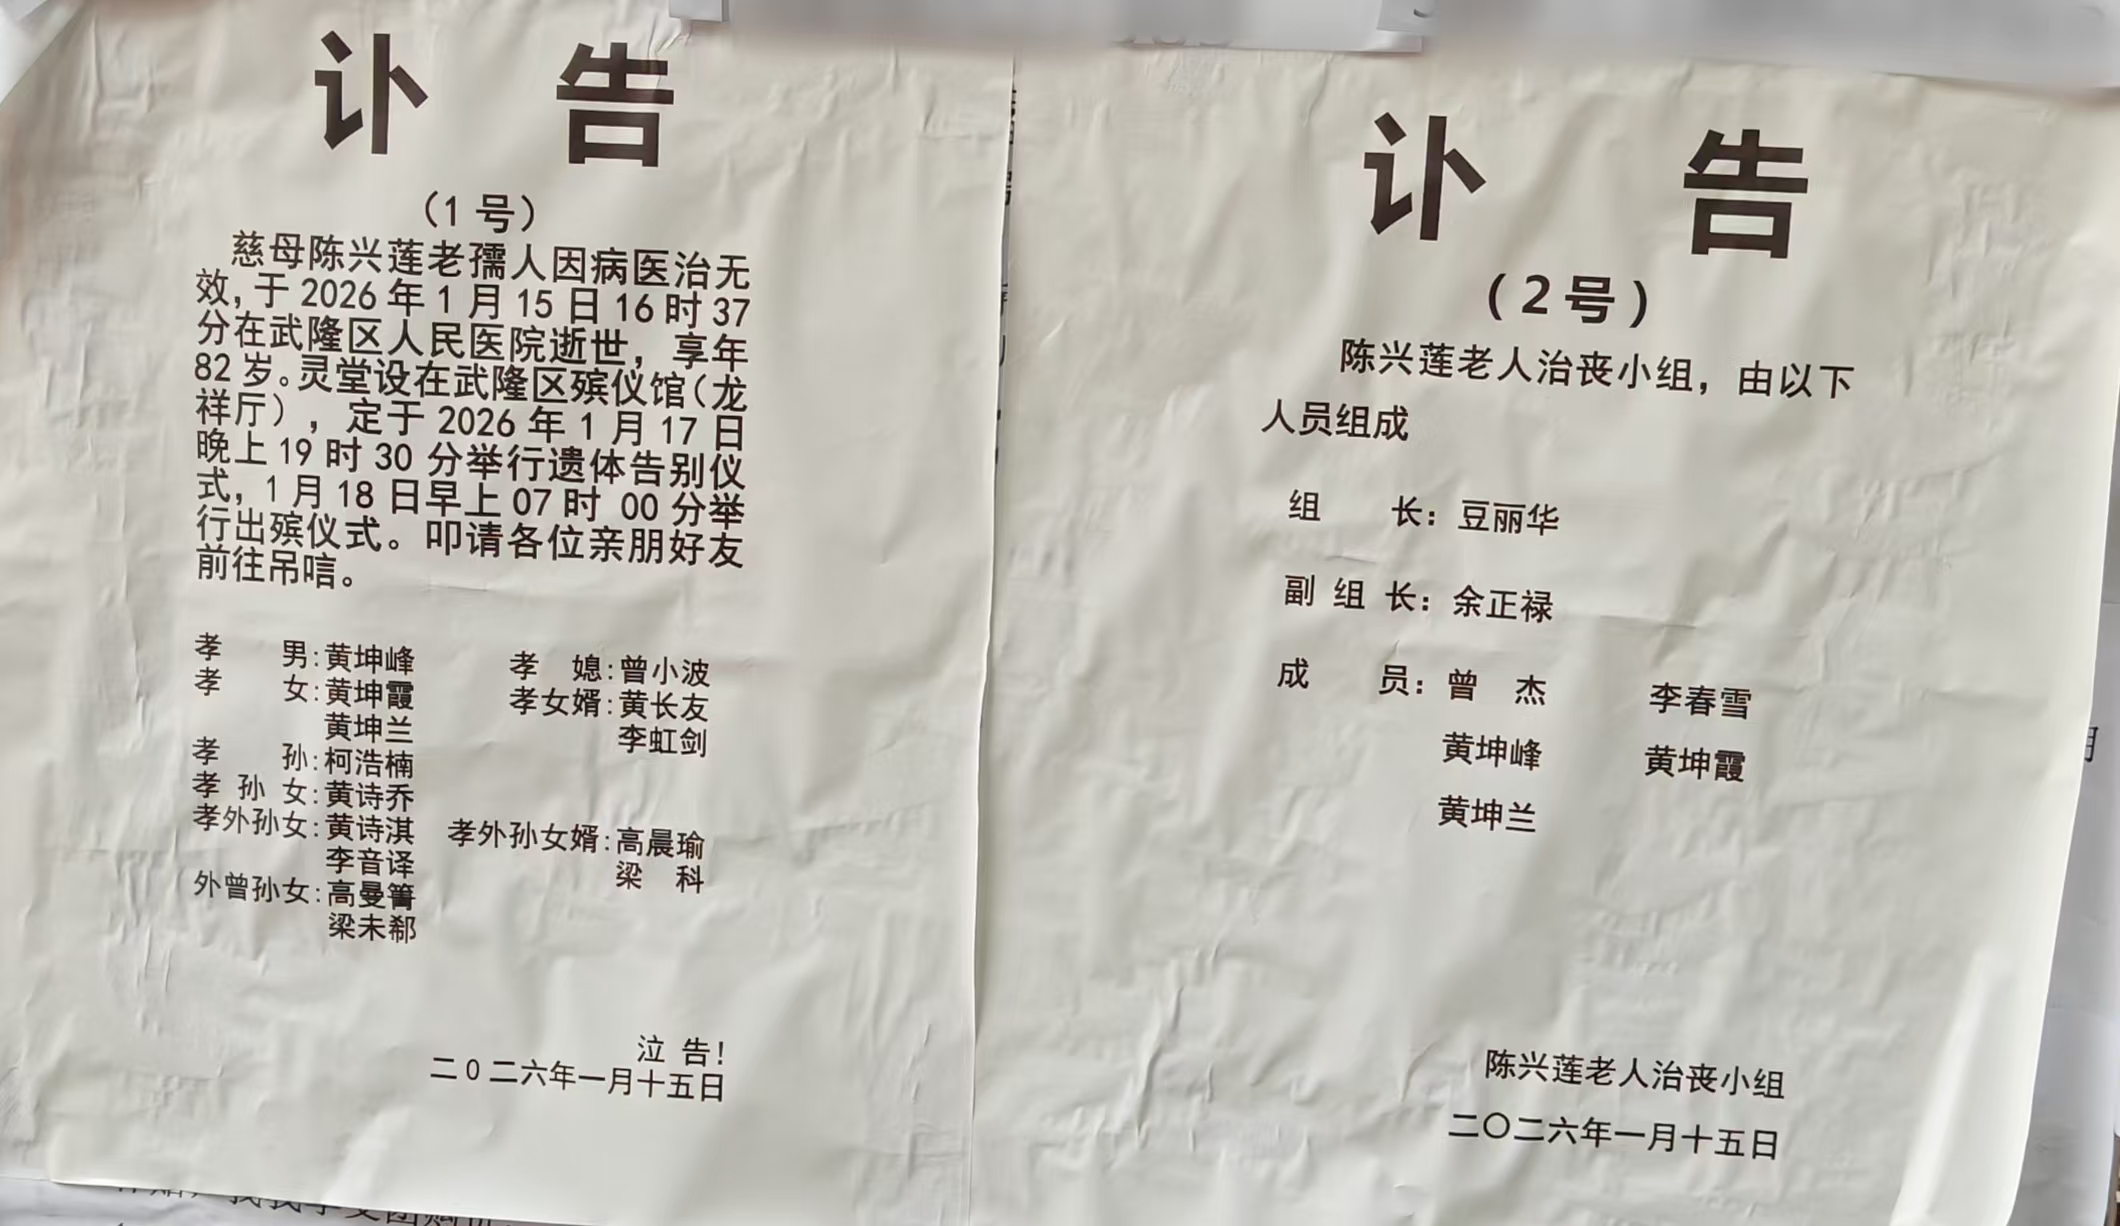 讣 告
（1 号）
慈母陈兴莲老孺人因病医治无
效，于 2026 年 1 月 15 日 16 时 37
分在武隆区人民医院逝世，享年
82 岁。灵堂设在武隆区殡仪馆（龙
祥厅），定于 2026 年 1 月 17 日
晚上 19 时 30 分举行遗体告别仪
式，1 月 18 日早上 07 时 00 分举
行出殡仪式。叩请各位亲朋好友
前往吊唁。
孝 男：黄坤峰 孝 媳：曾小波
孝 女：黄坤霞 孝女婿：黄长友
黄坤兰 李虹剑
孝 孙：柯浩楠
孝 孙 女：黄诗乔
孝外孙女：黄诗淇 孝外孙女婿：高晨瑜
李音译 梁 科
外曾孙女：高曼箐
梁未郗
泣 告！
二0二六年一月十五日
讣 告
（2号）
陈兴莲老人治丧小组，由以下
人员组成
组 长：豆丽华
副 组 长：余正禄
成 员：曾 杰 李春雪
黄坤峰 黄坤霞
黄坤兰
陈兴莲老人治丧小组
二〇二六年一月十五日